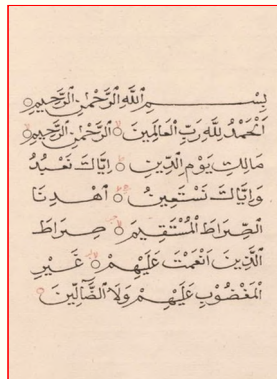 بِسْمِ اللَّهِ الرَّحْمٰنِ الرَّحِيمِ
اَلْحَمْدُ لِلَّهِ رَبِّ الْعَالَمِينَ الرَّحْمٰنِ الرَّحِيمِ
مَالِكِ يَوْمِ الدِّينِ اِيَّاكَ نَعْبُدُ
وَاِيَّاكَ نَسْتَعِينُ اَهْدِنَا
الصِّرَاطَ الْمُسْتَقِيمَ صِرَاطَ
الَّذِينَ اَنْعَمْتَ عَلَيْهِمْ غَيْرِ
الْمَغْضُوبِ عَلَيْهِمْ وَلَا الضَّآلِّينَ